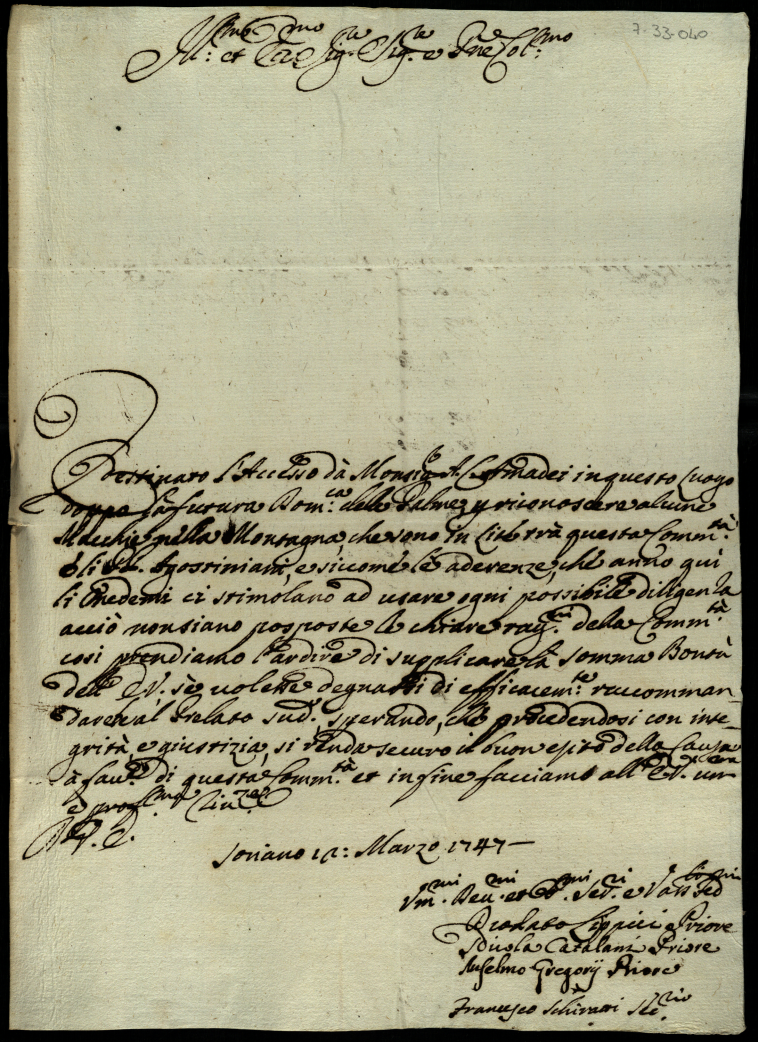 7-33-040
Ill.mo et Ecc.mo Sig.re Sig.re e Pne Col.mo
Destinato l'Accesso dà Monsig.r Amadei in questo Luogo
doppo la futura Dom.ca delle Palme p riconoscere alcune
Macchie nella Montagna, che sono in Lite trà questa Comm.tà
e li Agostiniani, e siccome le aderenze, che anno quì
li medemi ci stimolano ad usare ogni possibile diligenza
acciò non siano posposte le chiare rag.ni della Comm.tà
così prendiamo l'ardire di supplicare la somma Bontà
dell' E.V. sè volesse degnarsi di efficacem.te raccomman
darche al Prelato sud.o, sperando, che procedendosi con inte-
grità, e giustizia, si renda securo il buon esito della Causa
à fav.e di questa Comm.tà et in fine facciamo all' E.V. um.ma
e prof.ma Riv.za
D. V. E.
Soriano 12: Marzo 1747
Um.mi Dev.mi et Ser.ri e Vass
Diodato Lippici Priore
Nicola Catalani Priore
Anselmo Gregorij Priore
Francesco Schiratti Seg.rio